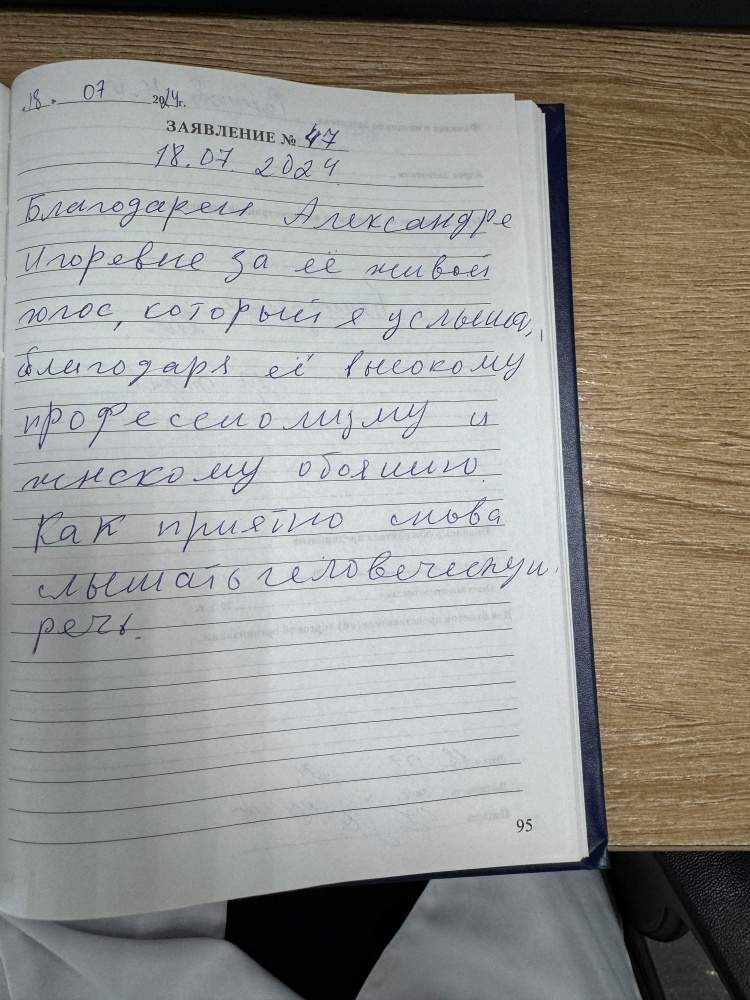 18. 07 2024г.
ЗАЯВЛЕНИЕ № 47
18.07. 2024
Благодарен Александре
Игоревне за её живой
голос, который я услышал,
благодаря её высокому
професселизму и
жнскому обоянию.
Как приятно снова
слышать человеческую
речь.
95